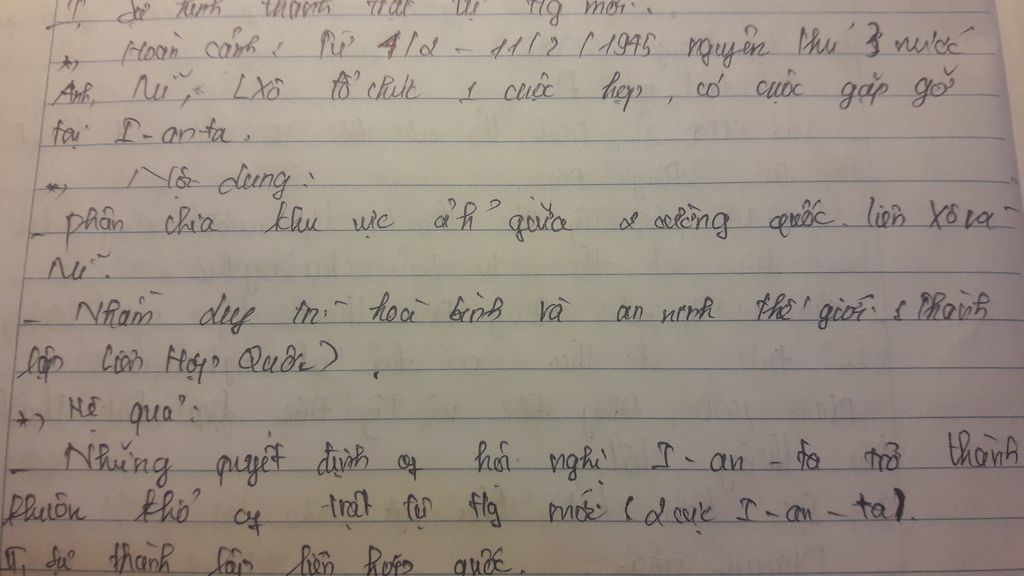 I, sự hình thành trật tự tg mới.
*, Hoàn cảnh: Từ 4/2 - 11/2/1945 nguyên thủ 3 nước
Anh, Mĩ, LXô tổ chức 1 cuộc họp, có cuộc gặp gỡ
tại I-an-ta.
*, Nội dung:
- phân chia khu vực ả/h' giữa 2 cường quốc liên xô và
Mĩ.
- Nhằm duy trì hoà bình và an ninh thế giới (thành
lập Liên Hợp Quốc).
*, Hệ quả:
- Những quyết định of hội nghị I-an-ta trở thành
khuôn khổ of trật tự tg mới (2 cực I-an-ta).
II, sự thành lập liên hợp quốc.